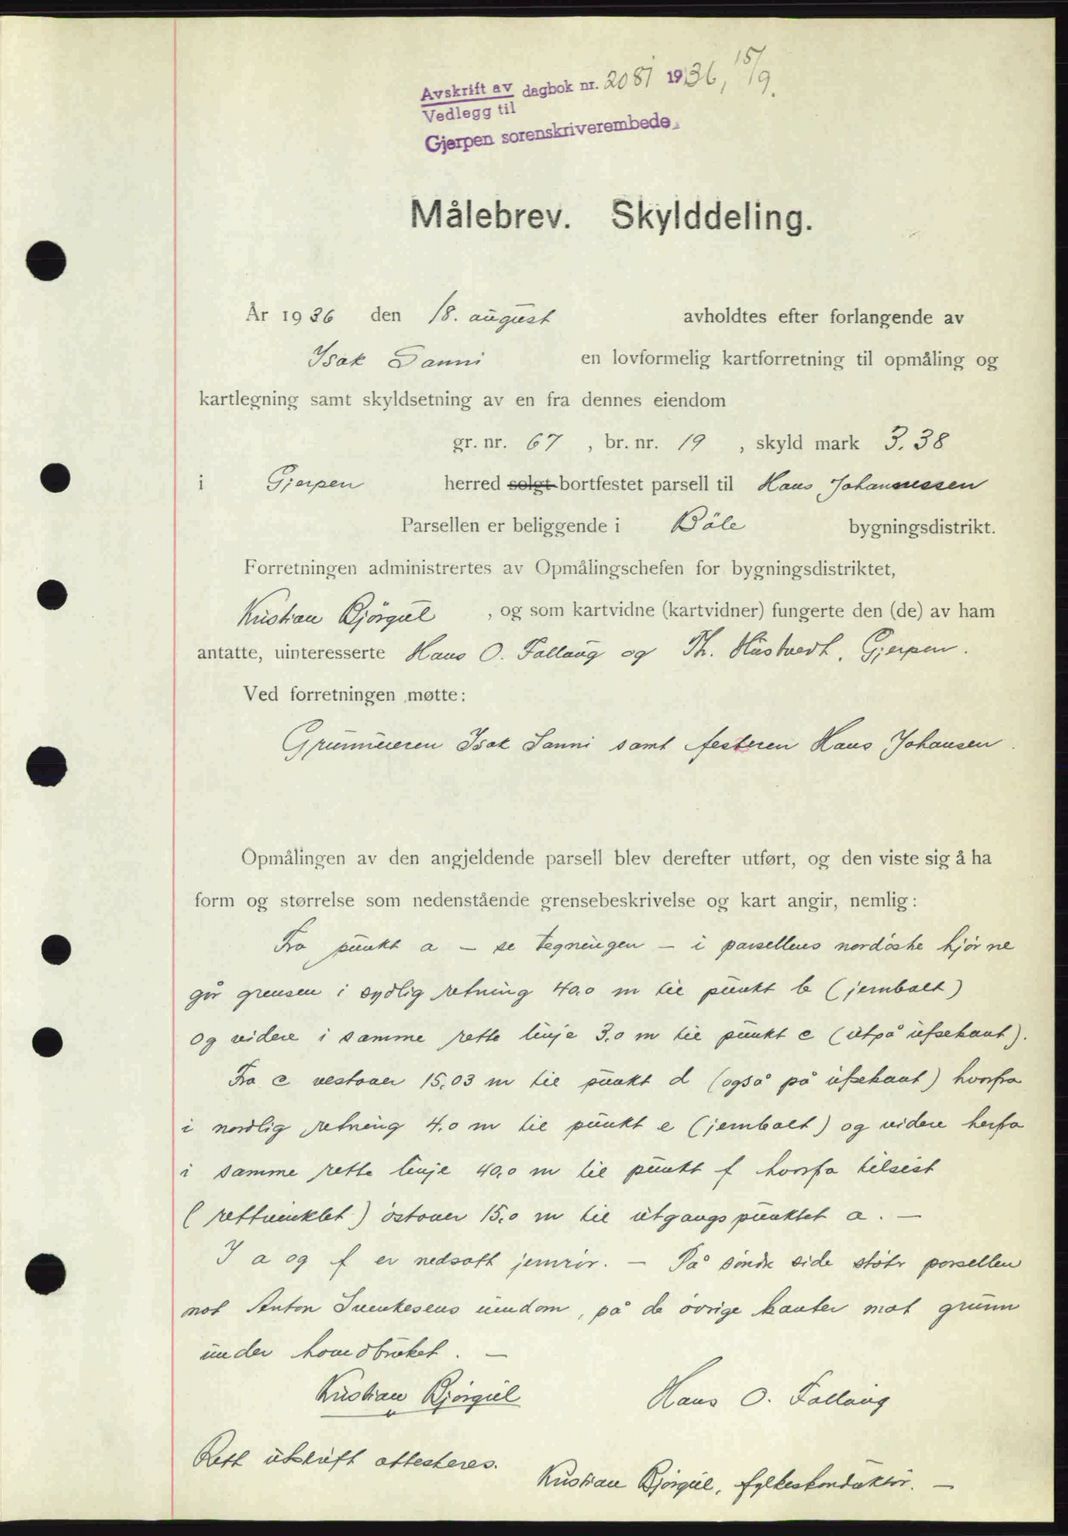 Avskrift av dagbok nr. 2081 1936, 15/9.
Vedlegg til
Gjerpen sorenskriverembede.
Målebrev. Skylddeling.
År 1936 den 18. august avholdtes efter forlangende av
Isak Sanni en lovformelig kartforretning til opmåling og
kartlegning samt skyldsetning av en fra dennes eiendom
gr. nr. 67, br. nr. 19, skyld mark 3.38
i Gjerpen herred solgt bortfestet parsell til Hans Johannessen
Parsellen er beliggende i Böle bygningsdistrikt.
Forretningen administrertes av Opmålingschefen for bygningsdistriktet,
Kristian Bjørgul, og som kartvidne (kartvidner) fungerte den (de) av ham
antatte, uinteresserte Hans O. Fallaug og Th. Hustvedt, Gjerpen.
Ved forretningen møtte:
Grunneieren Isak Sanni samt festeren Hans Johansen.
Opmålingen av den angjeldende parsell blev derefter utført, og den viste sig å ha
form og størrelse som nedenstående grensebeskrivelse og kart angir, nemlig:
Fra punkt a – se tegningen – i parsellens nordöstre hjörne
går grensen i sydlig retning 40,0 m til punkt b (jernbolt)
og videre i samme rette linje 3,0 m til punkt c (utpå ufsekant).
Fra c vestover 15,03 m til punkt d (også på ufsekant) hvorfra
i nordlig retning 4,0 m til punkt e (jernbolt) og videre herfra
i samme rette linje 40,0 m til punkt f hvorfra tilsist
(rettvinklet) östover 15,0 m til utgangspunktet a. –
I a og f er nedsatt jernrör. – På söndre side stöter parsellen
mot Anton Svenkesens eiendom, på de övrige kanter mot grunn
under hovedbruket. –
Kristian Bjørgul Hans O. Fallaug
Rett utskrift attesteres.
Kristian Bjørgul, fylkeskonduktör. –